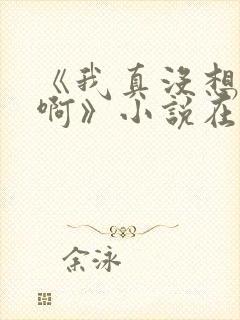 《我真没想
啊》小说在
余泳